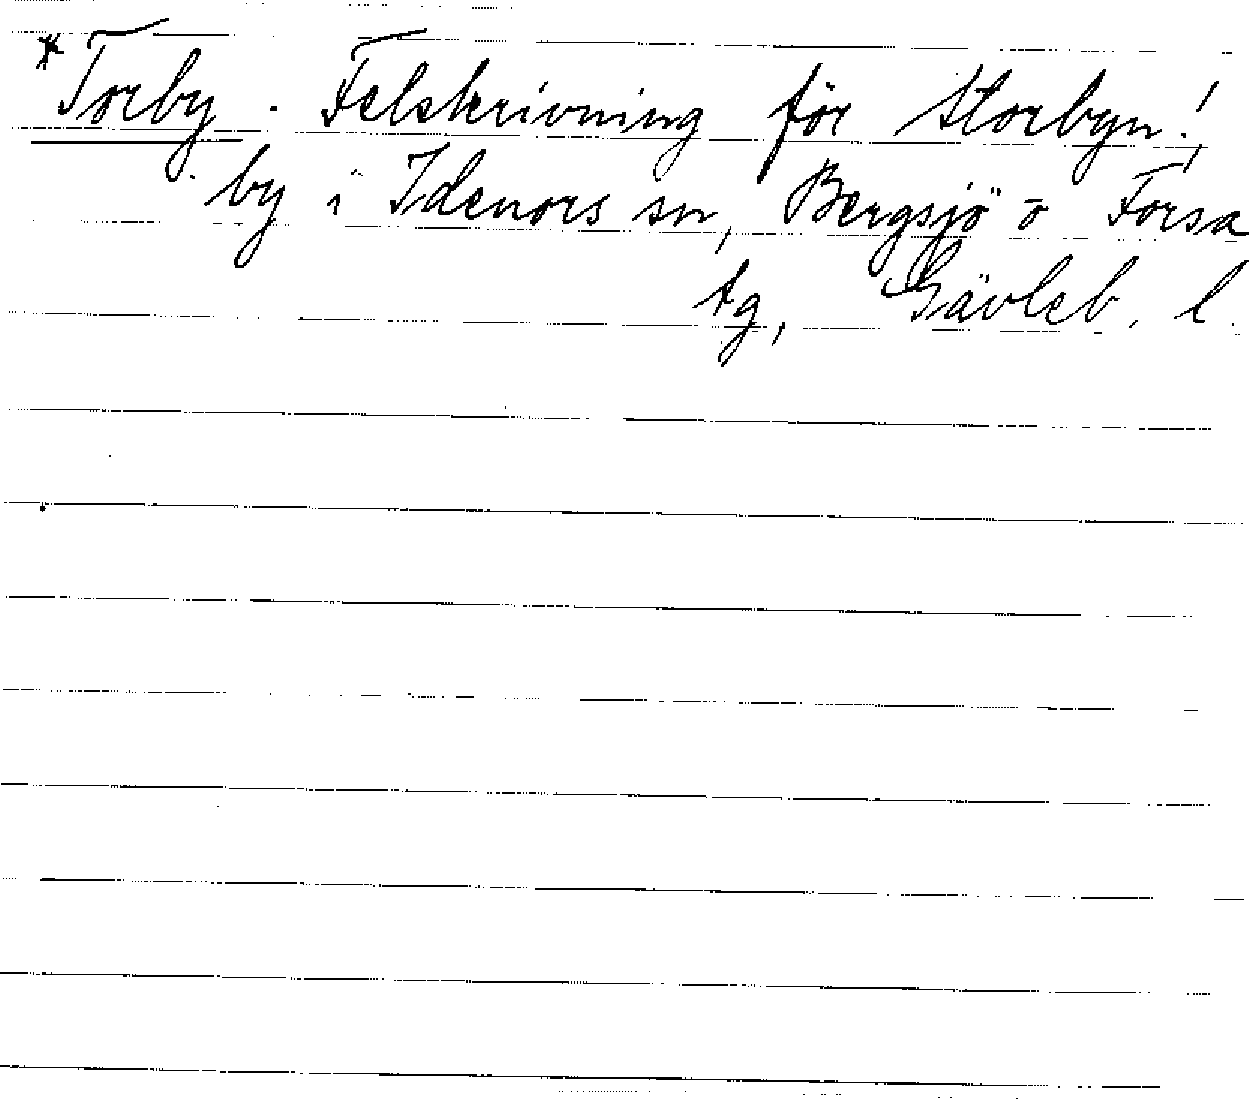 *Torby. Felskrivning för Storbyn!,
by i Idenors sn, Bergsjö o Forsa
tg, Gävleb. l.